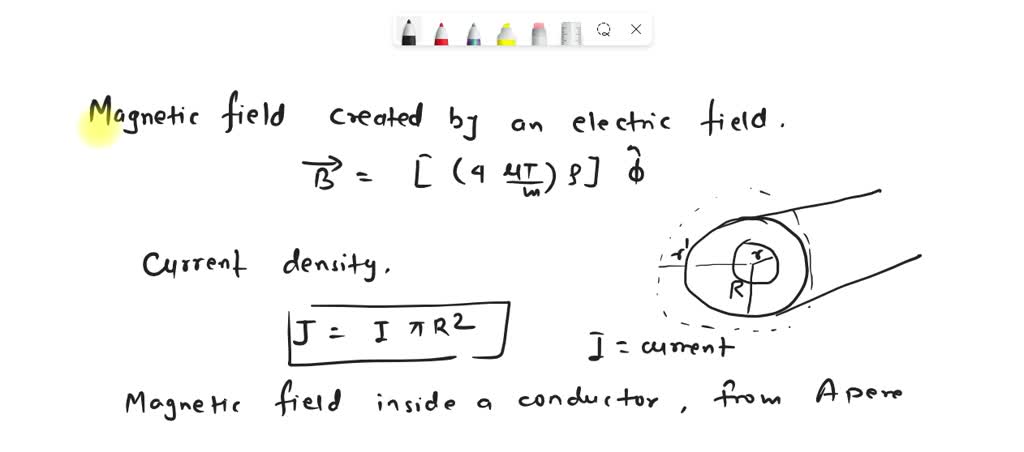 Magnetic field created by an electric field.
B = [ (9 μT/m) ρ ] φ̂
r'
r
R
Current density.
J = I π R2
I = current
Magnetic field inside a conductor, from Apere